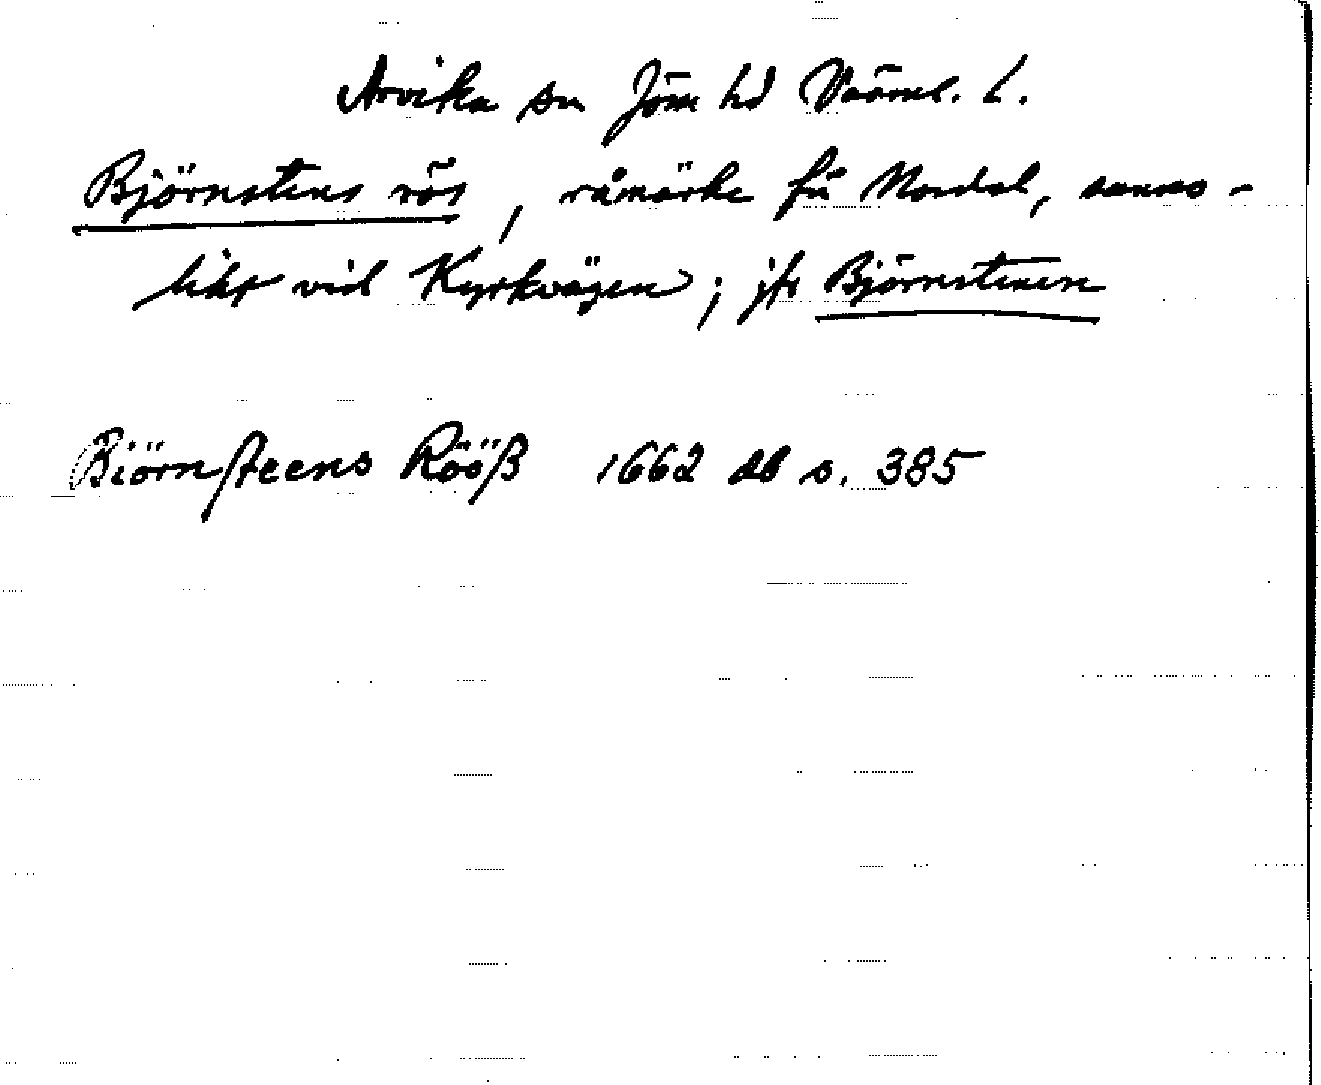 Arvika sn Jösse hd Värml. L.
Björnstens rös, råmärke för Nordal, sanno-
likt vid Kyrkvägen; jfr Björnstenen
Biörnsteens Rööß 1662 db s. 385